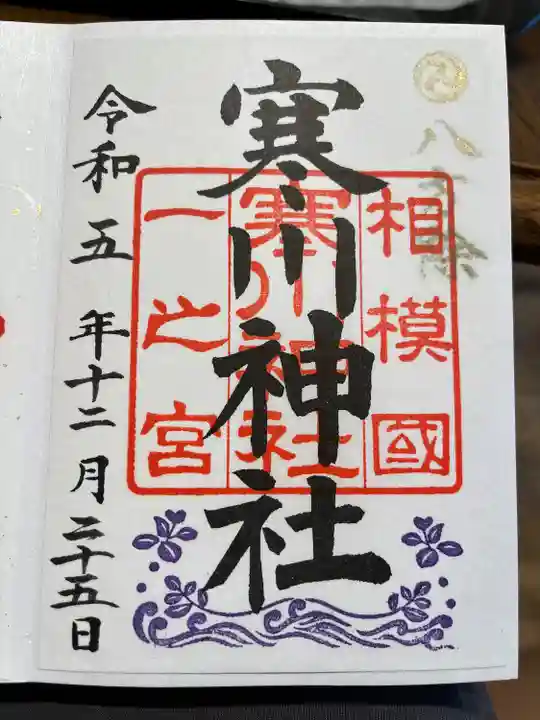 八方除
寒川神社
相模國
寒川神社
一之宮
令和五年十二月二十五日